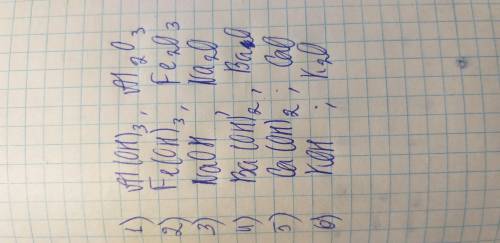 1) Al(OH)3, Al2O3
2) Fe(OH)3, Fe2O3
3) NaOH, Na2O
4) Ba(OH)2, BaO
5) Ca(OH)2, CaO
6) KOH, K2O